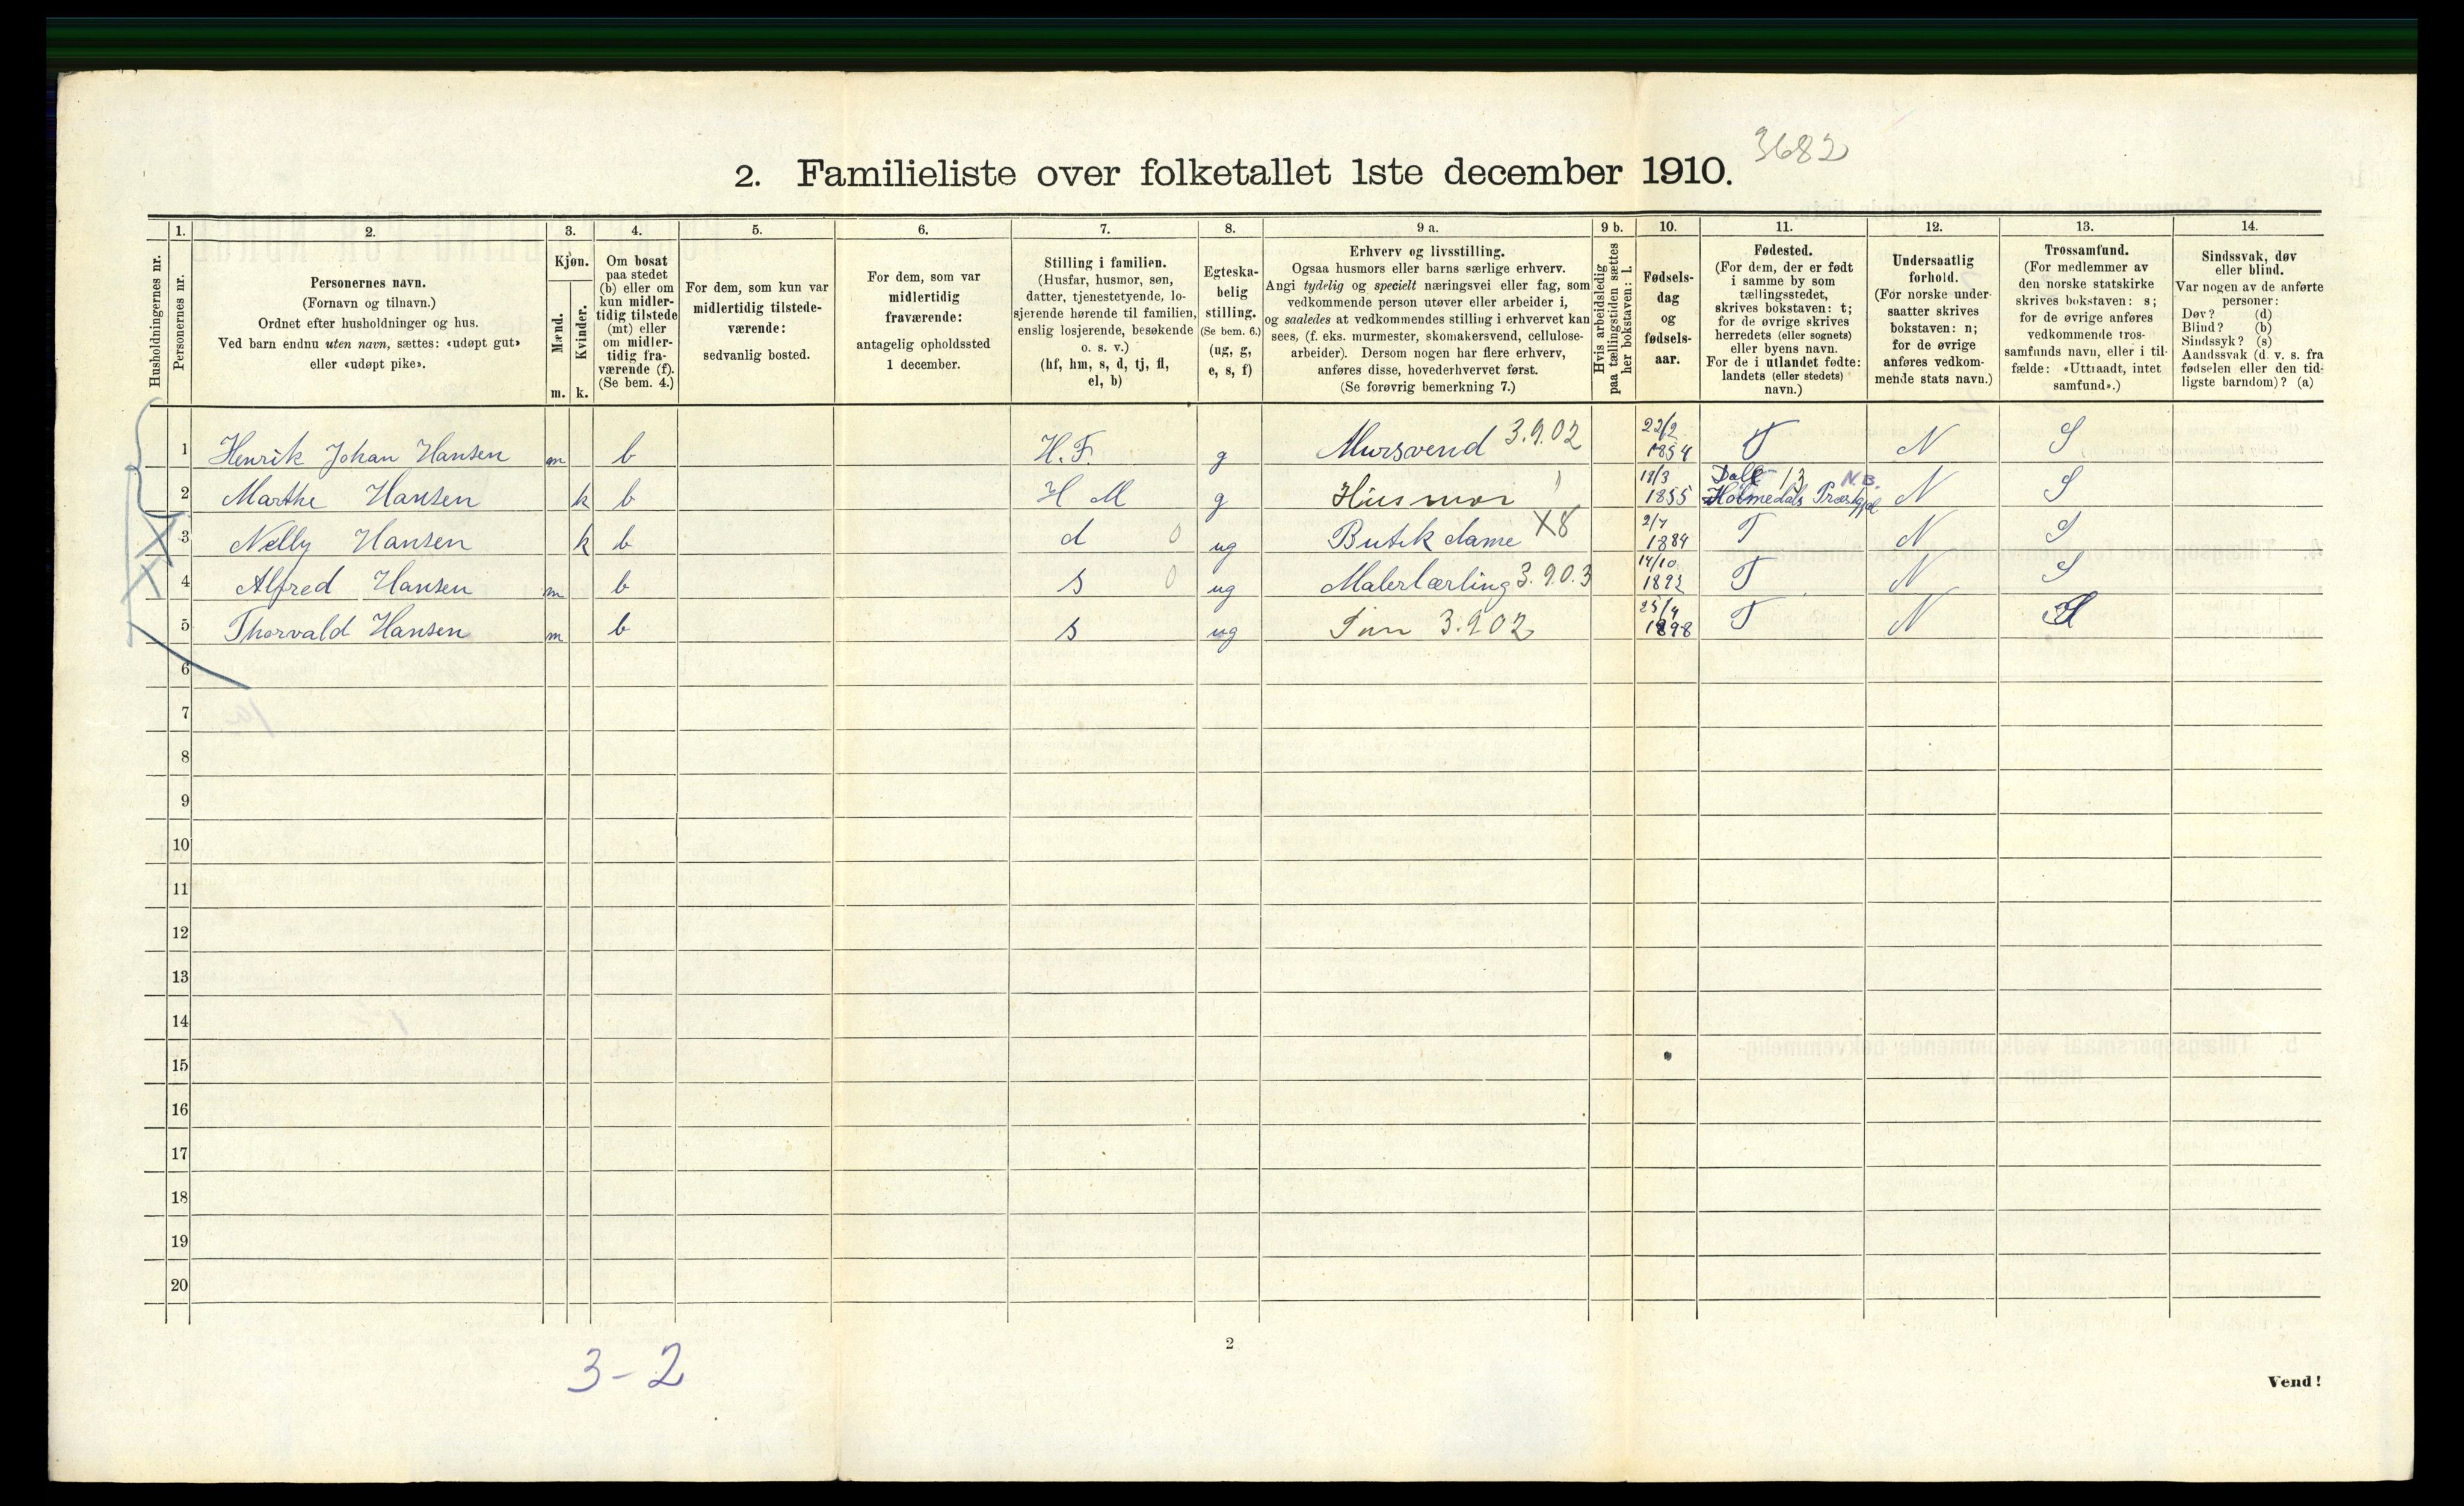 3682
2. Familieliste over folketallet 1ste december 1910.
Husholdningernes nr.
1.
Personernes nr.
2.
Personernes navn.
(Fornavn og tilnavn.)
Ordnet efter husholdninger og hus.
Ved barn endnu uten navn, sættes: «udøpt gut»
eller «udøpt pike».
3.
Kjøn.
Mænd.
Kvinder.
m. k.
4.
Om bosat
paa stedet
(b) eller om
kun midler-
tidig tilstede
(mt) eller
om midler-
tidig fra-
værende (f).
(Se bem. 4.)
5.
For dem, som kun var
midlertidig tilstede-
værende:
sedvanlig bosted.
6.
For dem, som var
midlertidig
fraværende:
antagelig opholdssted
1 december.
7.
Stilling i familien.
(Husfar, husmor, søn,
datter, tjenestetyende, lo-
sjerende hørende til familien,
enslig losjerende, besøkende
o. s. v.)
(hf, hm, s, d, tj, fl,
el, b)
8.
Egteska-
belig
stilling.
(Se bem. 6.)
(ug, g,
e, s, f)
9 a.
Erhverv og livsstilling.
Ogsaa husmors eller barns særlige erhverv.
Angi tydelig og specielt næringsvei eller fag, som
vedkommende person utøver eller arbeider i,
og saaledes at vedkommendes stilling i erhvervet kan
sees, (f. eks. murmester, skomakersvend, cellulose-
arbeider). Dersom nogen har flere erhverv,
anføres disse, hovederhvervet først.
(Se forøvrig bemerkning 7.)
9 b.
Hvis arbeidsledig
paa tællingstiden sættes
her bokstaven: l.
10.
Fødsels-
dag
og
fødsels-
aar.
11.
Fødested.
(For dem, der er født
i samme by som
tællingsstedet,
skrives bokstaven: t;
for de øvrige skrives
herredets (eller sognets)
eller byens navn.
For de i utlandet fødte:
landets (eller stedets)
navn.)
12.
Undersaatlig
forhold.
(For norske under-
saatter skrives
bokstaven: n;
for de øvrige
anføres vedkom-
mende stats navn.)
13.
Trossamfund.
(For medlemmer av
den norske statskirke
skrives bokstaven: s;
for de øvrige anføres
vedkommende tros-
samfunds navn, eller i til-
fælde: «Uttraadt, intet
samfund».)
14.
Sindssvak, døv
eller blind.
Var nogen av de anførte
personer:
Døv? (d)
Blind? (b)
Sindssyk? (s)
Aandssvak (d. v. s. fra
fødselen eller den tid-
ligste barndom)? (a)
1 Henrik Johan Hansen m b H.F. g Mursvend 3.9.02 22/2 1854 T N S
2 Marthe Hansen k b H M g Husmor 19/3 1855 Dale 13 N.B. Holmedals Præstgjel N S
3 Nelly Hansen k b d 0 ug Butik dame X8 2/7 1884 T N S
4 Alfred Hansen m b s 0 ug Malerlærling 3.9.0.3 14/10 1892 T N S
5 Thorvald Hansen m b s ug 3.9.02 25/4 1898 T N S
6
7
8
9
10
11
12
13
14
15
16
17
18
19
20
3-2
2
Vend!